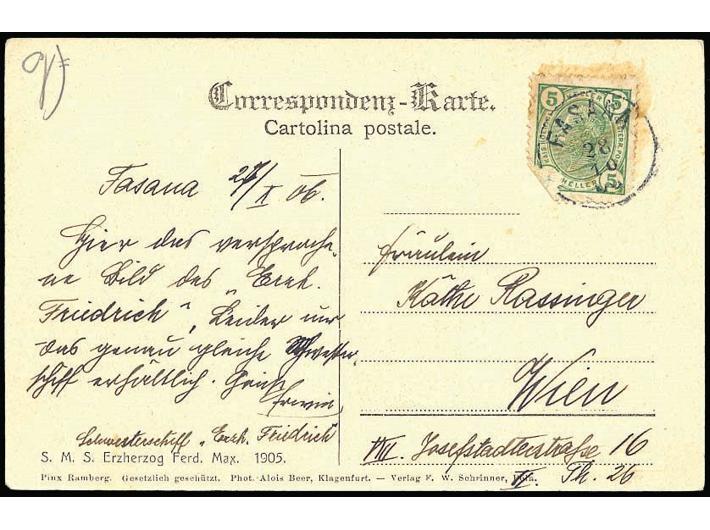 Correspondenz-Karte.
Cartolina postale.
5
5
5
HELLER
FASANA
28
10
Fasana 27/X 06.
Hier das versproche-
ne Bild des „Erzh.
Friedrich", Leider nur
das genau gleiche Schwester-
schiff erhältlich.
Erwin
Schwesterschiff „Erzh. Friedrich"
Fräulein
Käthe Rassinger
Wien
VIII. Josefstadterstraße 16
Th. 26
S. M. S. Erzherzog Ferd. Max. 1905.
Pinx Ramberg. Gesetzlich geschützt. Phot. Alois Beer, Klagenfurt. — Verlag F. W. Schrinner, Pola.